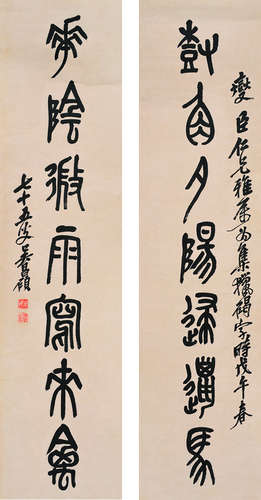 燮臣仁兄雅屬為集獵碣字時戊午春
尌夕陽歸馬
華陰微雨寫來禽
七十五叟吳昌碩